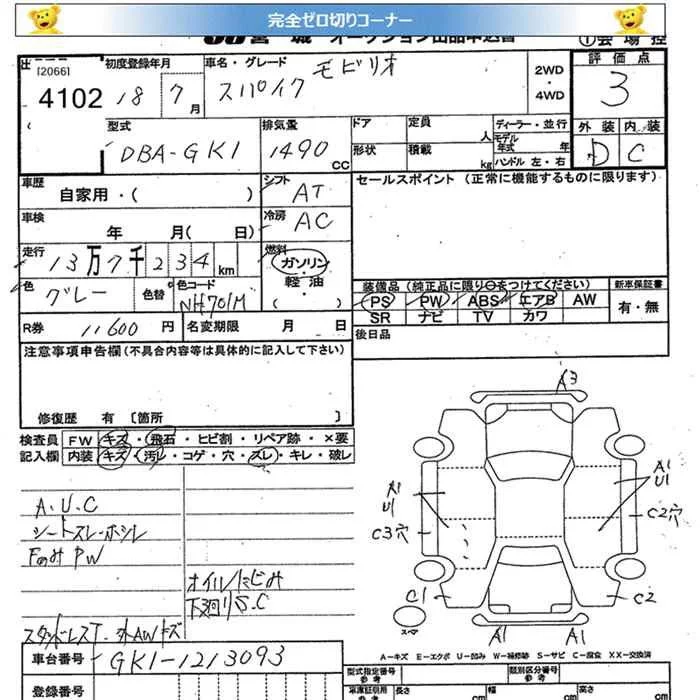 完全ゼロ切りコーナー
JU宮城 オークション出品申込書
①会場控
[2066]
4102
初度登録年月
18 7月
車名・グレード
モビリオ
スパイク
2WD
・
4WD
評価点
3
外装 内装
D C
型式
DBA-GK1
排気量
1490 CC
ドア
定員
人
形状
積載
kg
ディーラー・並行
モデル年式 年
ハンドル 左・右
車歴
自家用・( )
シフト
AT
セールスポイント (正常に機能するものに限ります)
車検
年 月( 日)
冷房
AC
走行
13万7千234km
燃料
ガソリン・
軽油
色
グレー
色替
色コード
NH701M
装備品 (純正品に限り○をつけてください)
PS PW ABS エアB AW
SR ナビ TV カワ
新車保証書
有・無
R券
11600 円
名変期限 月 日
後日品
注意事項申告欄(不具合内容等は具体的に記入して下さい)
修復歴 有 〔箇所 〕
検査員
記入欄
FW キズ・飛石・ヒビ割・リペア跡・×要
内装 キズ・汚レ・コゲ・穴・スレ・キレ・破レ
A.U.C
シートスレ・ホシレ
Fのみ PW
オイルにじみ
下廻りS.C
スタッドレスT・外AWキズ
A3
A1
U1
C3穴
A1
U1
C2穴
C1
C2
スペア
A1
A1
A-キズ E-エクボ U-凹み W-補修跡 S-サビ C-腐食 XX-交換済
車台番号
GK1-1213093
登録番号
型式指定番号
参考
類別区分番号
参考
車庫証明用
参考
長さ
cm
幅
cm
高さ
cm